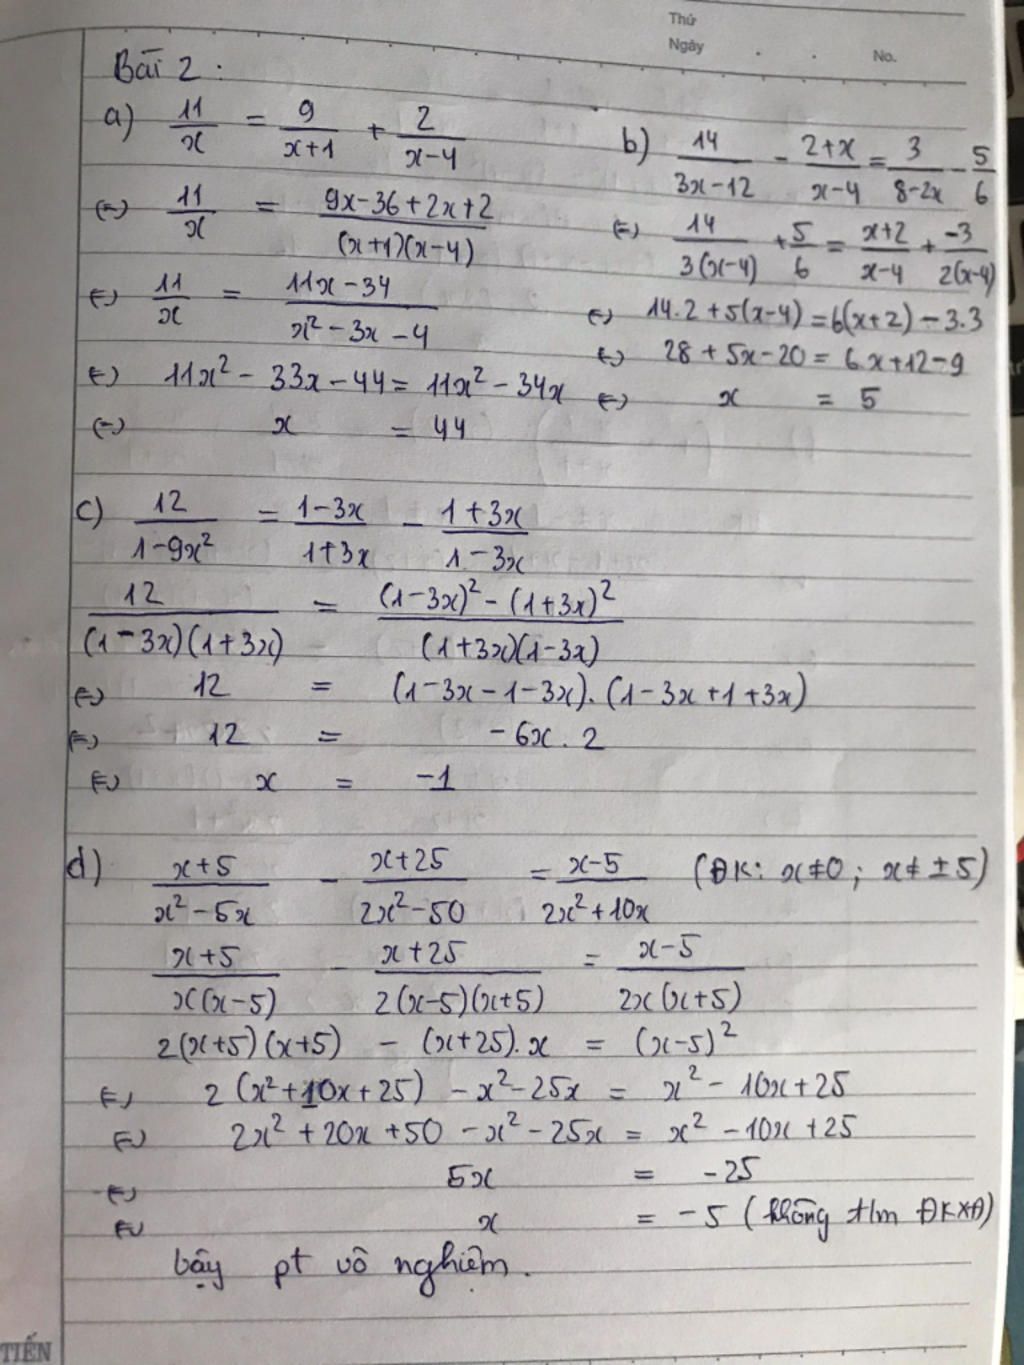 Thứ
Ngày
No.
Bài 2 :
a) 11/x = 9/(x+1) + 2/(x-4)
(=) 11/x = (9x-36+2x+2)/((x+1)(x-4))
(=) 11/x = (11x-34)/(x²-3x-4)
(=) 11x² - 33x - 44 = 11x² - 34x
(=) x = 44
b) 14/(3x-12) - (2+x)/(x-4) = 3/(8-2x) - 5/6
(=) 14/(3(x-4)) + 5/6 = (x+2)/(x-4) + -3/(2(x-4))
(=) 14.2 + 5(x-4) = 6(x+2) - 3.3
(=) 28 + 5x - 20 = 6x + 12 - 9
(=) x = 5
c) 12/(1-9x²) = (1-3x)/(1+3x) - (1+3x)/(1-3x)
12/((1-3x)(1+3x)) = ((1-3x)² - (1+3x)²)/((1+3x)(1-3x))
(=) 12 = (1-3x-1-3x).(1-3x+1+3x)
(=) 12 = -6x.2
(=) x = -1
d) (x+5)/(x²-5x) - (x+25)/(2x²-50) = (x-5)/(2x²+10x) (ĐK: x≠0; x≠±5)
(x+5)/(x(x-5)) - (x+25)/(2(x-5)(x+5)) = (x-5)/(2x(x+5))
2(x+5)(x+5) - (x+25).x = (x-5)²
(=) 2(x²+10x+25) - x² - 25x = x² - 10x + 25
(=) 2x² + 20x + 50 - x² - 25x = x² - 10x + 25
(=) 5x = -25
(=) x = -5 (không t/m ĐKXĐ)
Vậy pt vô nghiệm.
TIẾN